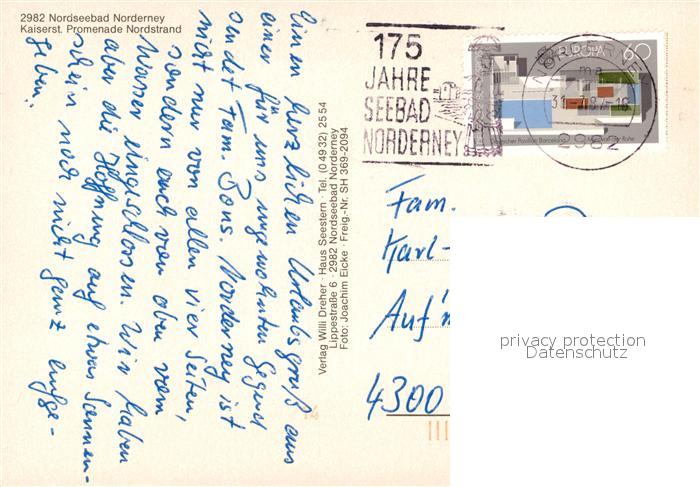 2982 Nordseebad Norderney
Kaiserst. Promenade Nordstrand
Einen herzlichen Urlaubsgruß aus
einer für uns ungewohnten Gegend
sendet Fam. Bons. Norderney ist
nicht nur von allen vier Seiten,
sondern auch von oben vom
Wasser eingeschlossen. Wir haben
aber die Hoffnung auf etwas Sonnen-
schein noch nicht ganz aufge-
geben.
Verlag Willi Dreher · Haus Seestern · Tel. (0 49 32) 25 54
Lippestraße 6 · 2982 Nordseebad Norderney
Foto: Joachim Eicke · Freig.-Nr. SH 369-2094
175
JAHRE
SEEBAD
NORDERNEY
EUROPA 60
2982
Fam.
Karl-
Auf'm
4300
privacy protection
Datenschutz